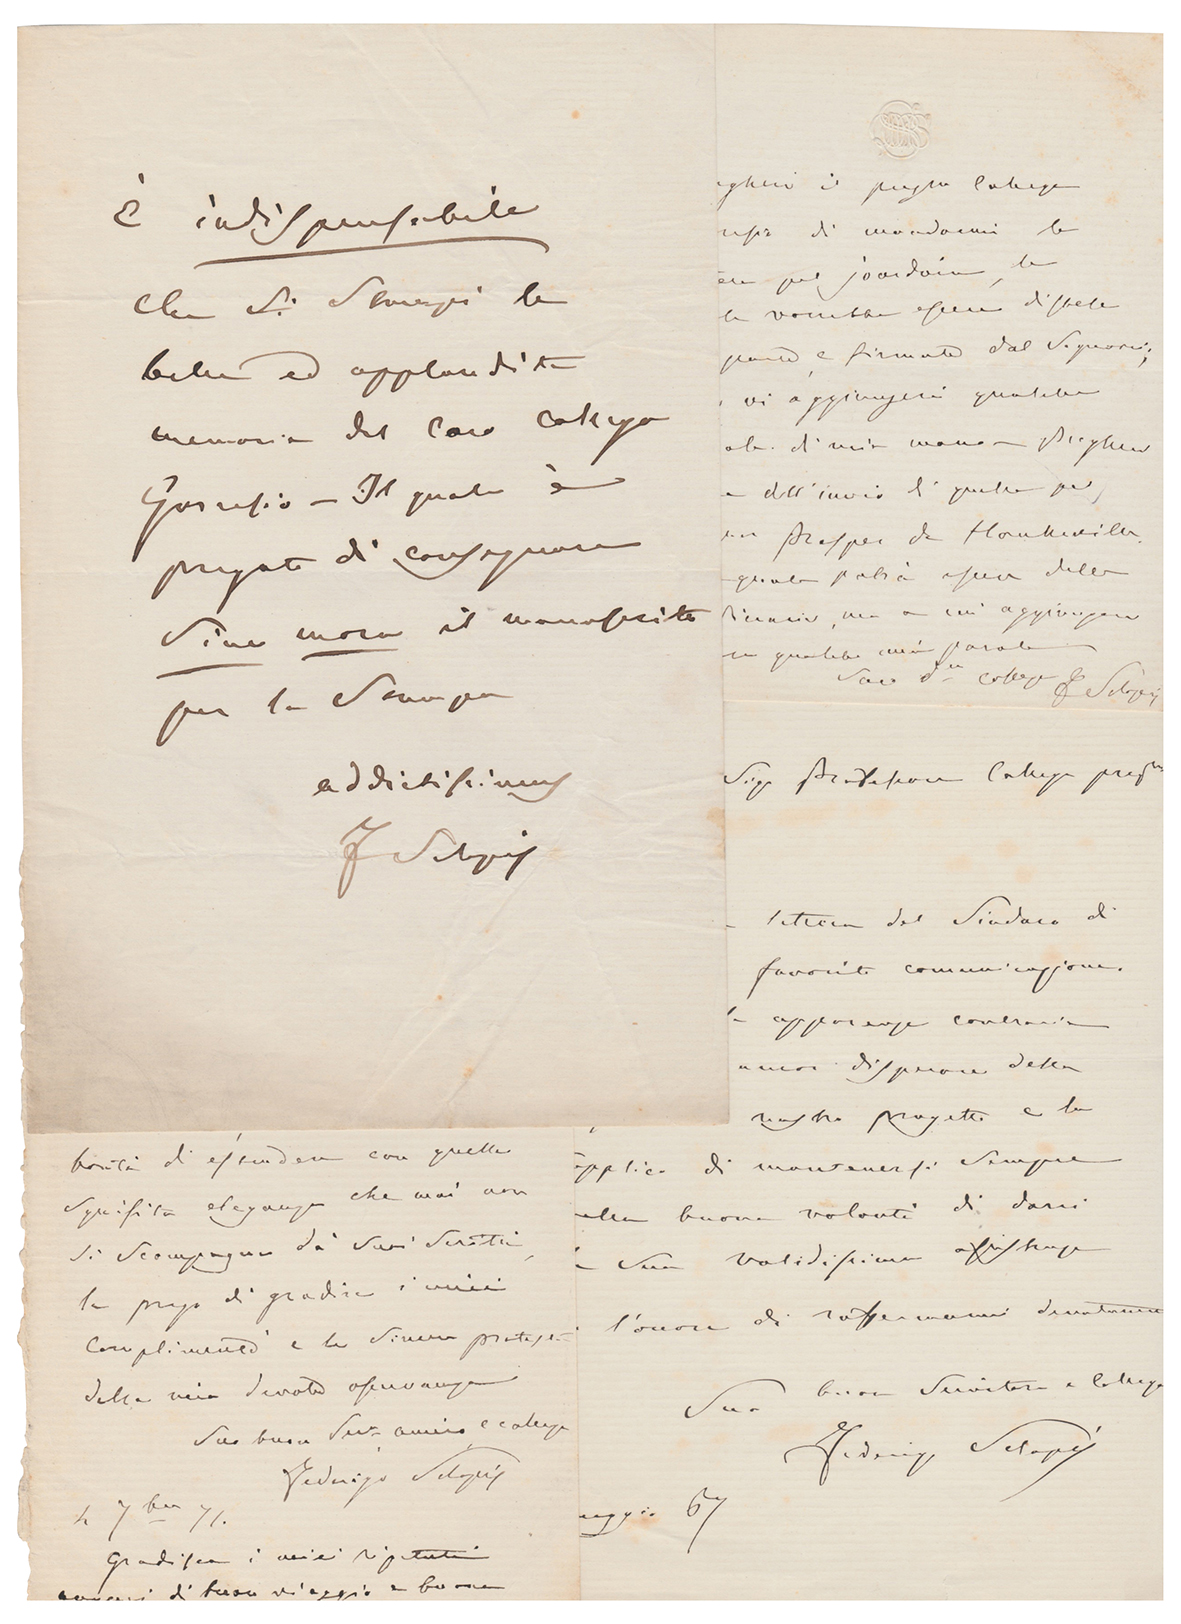 È indispensabile
che si stampi la
bella ed applaudita
memoria del caro collega
Gorresio – Il quale è
pregato di consegnare
sine mora il manoscritto
per la stampa
addictissimus
F Sclopis
il collega
di mandarmi la
pel Jourdain, la
vorrebbe essere distesa
e firmata dal Signore;
vi aggiungerei qualche
di mia mano – Pregherei
dell'invio di quella per
Prosper de Hauteville.
quale potrà essere della
ma a cui aggiungere
qualche mia parola
Suo collega F Sclopis
Sigr Professore Collega preg
lettera del Sindaco di
favorito comunicazione.
apparenze contrarie
disperare della
nostro progetto e la
applico di mantenersi sempre
nella buona volontà di darci
la Sua validissima assistenza
l'onore di raffermarmi devotamente
Suo buon Servitore e Collega
Federigo Sclopis
maggio 67
bontà di estendere con quella
squisita eleganza che mai non
si scompagna da' suoi scritti,
la prego di gradire i miei
complimenti e la sincera protesta
della mia devota osservanza
Suo buon Serv. amico e collega
Federigo Sclopis
4 7bre 71.
Gradisca i miei ripetuti
auguri di buon viaggio e buona